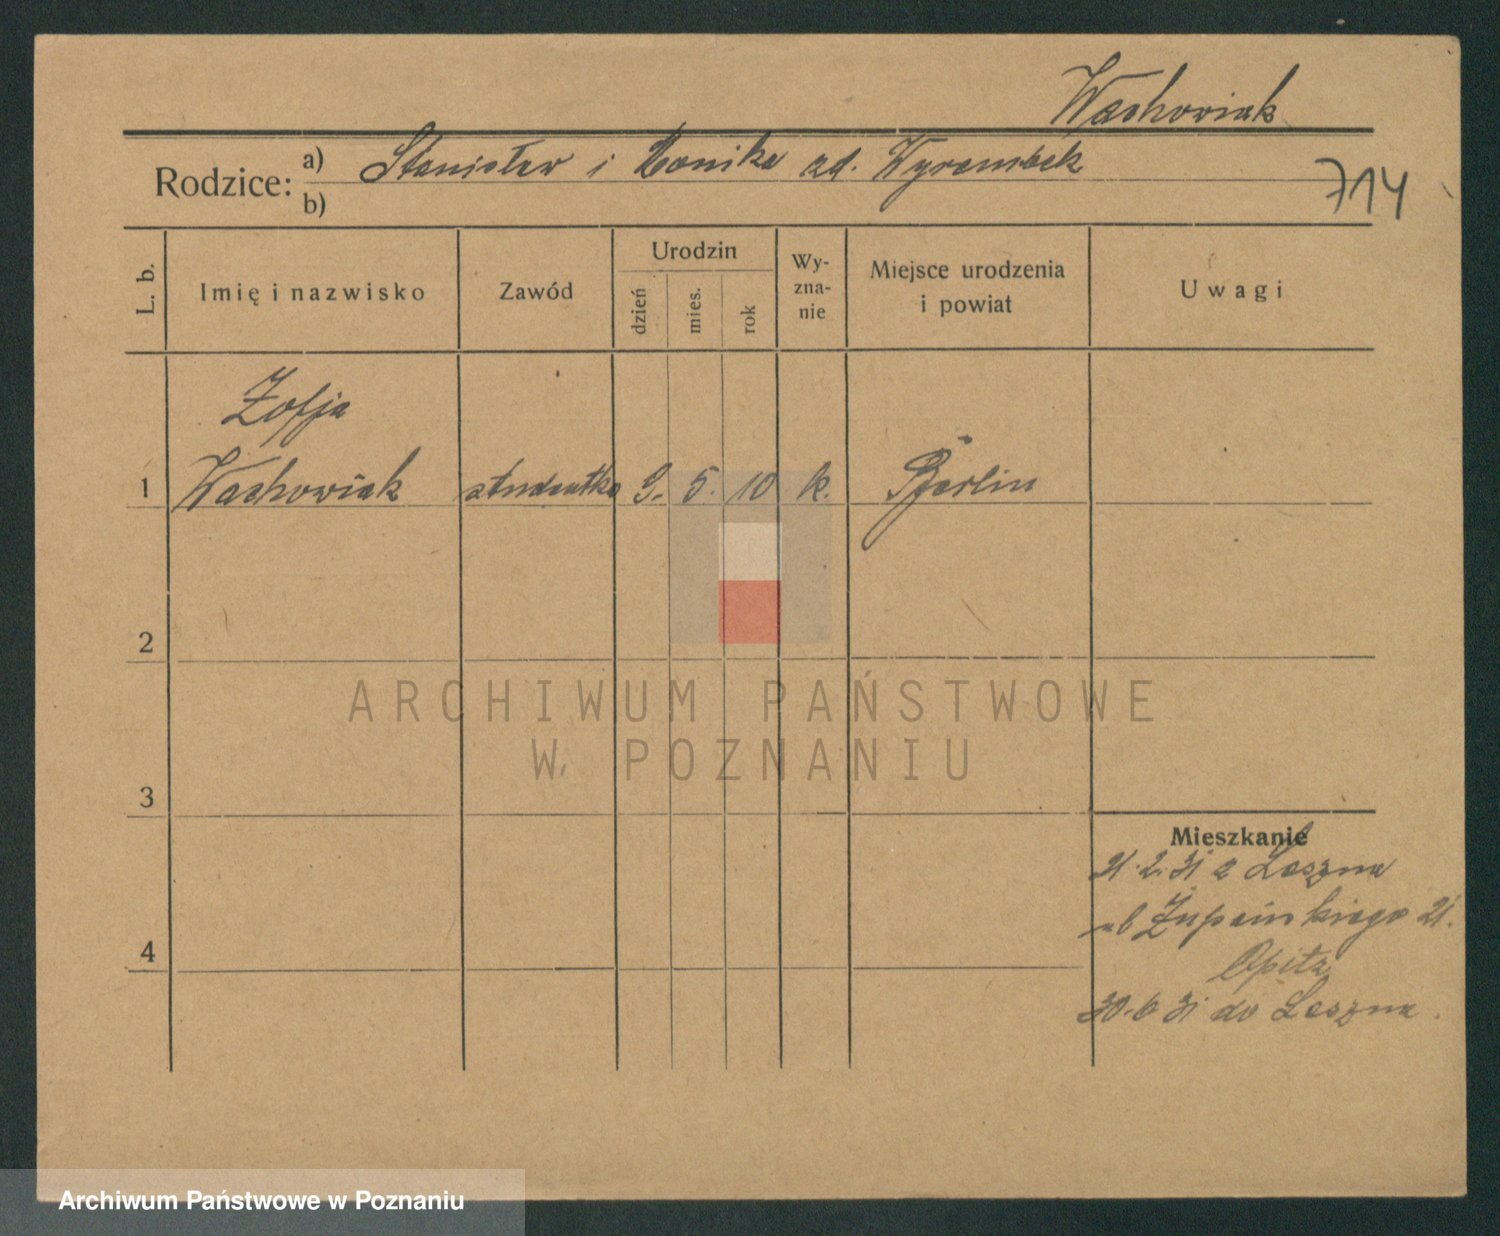 Wachowiak
Rodzice: a) Stanisław i Monika zd. Wyrembek
b)
714
L. b. Imię i nazwisko Zawód Urodzin dzień mies. rok Wy-zna-nie Miejsce urodzenia i powiat Uwagi
Zofja
1 Wachowiak studentka 9. 5. 10 k. Berlin
2
ARCHIWUM PAŃSTWOWE
W POZNANIU
3
Mieszkanie
21.2.31 z Leszna
Żupańskiego 21.
4
Opitz
30.6 31 do Leszna.
Archiwum Państwowe w Poznaniu